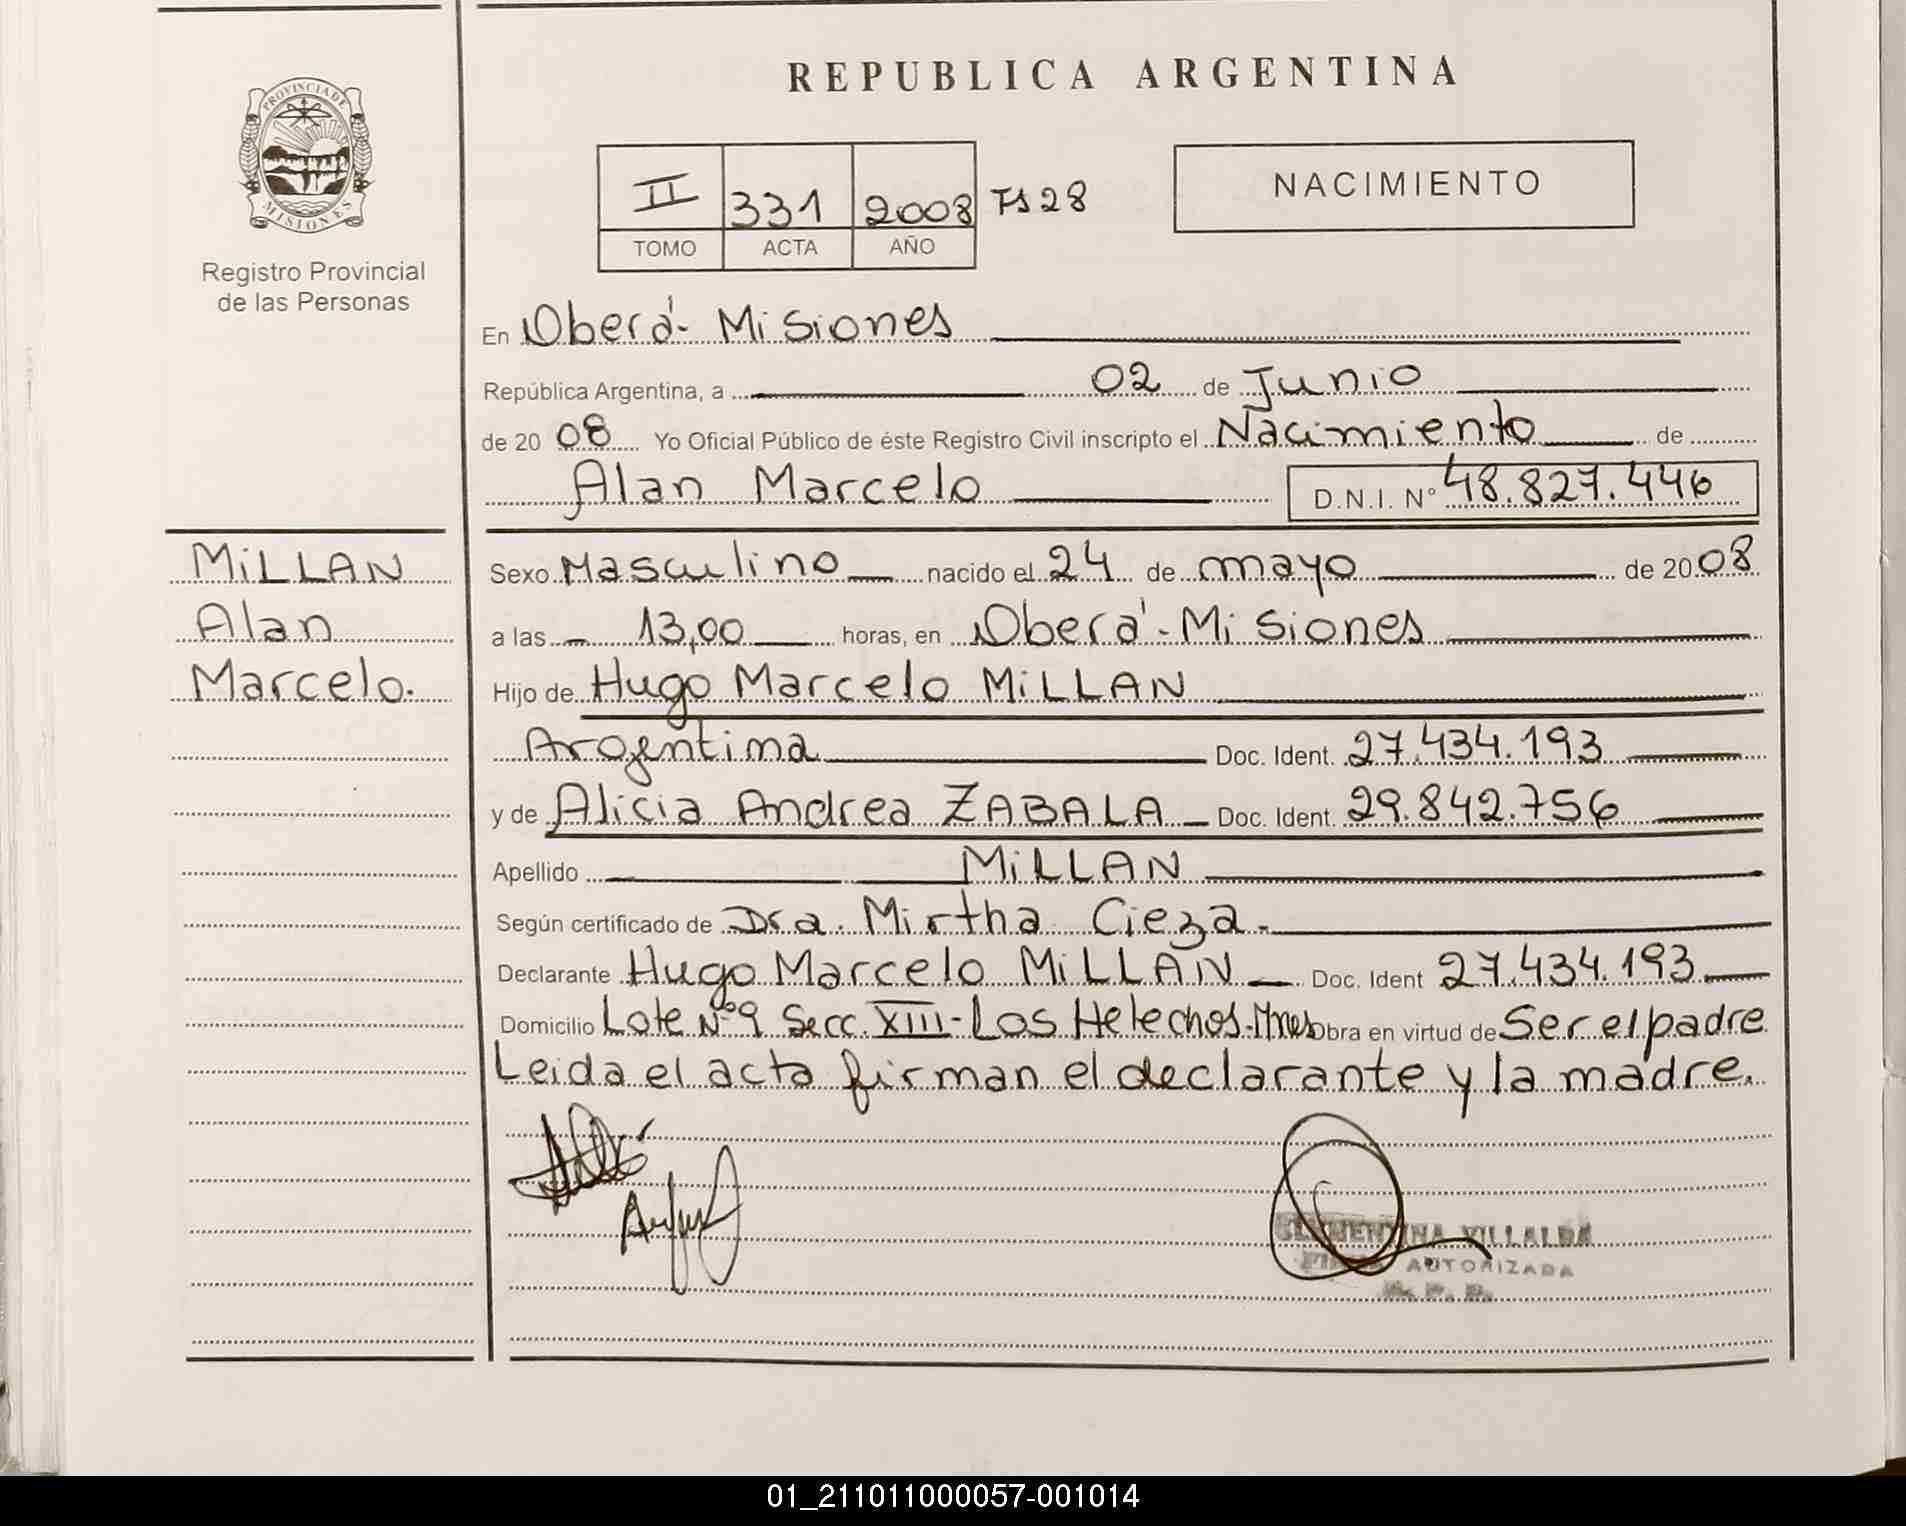 REPUBLICA ARGENTINA
PROVINCIA DE
MISIONES
Registro Provincial
de las Personas
II 331 2008 Fs 28
TOMO ACTA AÑO
NACIMIENTO
En Oberá - Misiones
República Argentina, a 02 de Junio
de 2008 Yo Oficial Público de éste Registro Civil inscripto el Nacimiento de
Alan Marcelo D.N.I. N° 48.827.446
MiLLAN
Alan
Marcelo.
Sexo Masculino nacido el 24 de mayo de 2008
a las 13,00 horas, en Oberá - Misiones
Hijo de Hugo Marcelo MiLLAN
Argentina Doc. Ident. 27.434.193
y de Alicia Andrea ZABALA Doc. Ident. 29.842.756
Apellido MiLLAN
Según certificado de Dra. Mirtha Cieza.
Declarante Hugo Marcelo MiLLAN Doc. Ident 27.434.193
Domicilio Lote N° 9 Secc. XIII - Los Helechos - Mnes Obra en virtud de Ser el padre
Leida el acta firman el declarante y la madre.
CLEMENTINA VILLALBA
FIRMA AUTORIZADA
R. P. P.
01_211011000057-001014